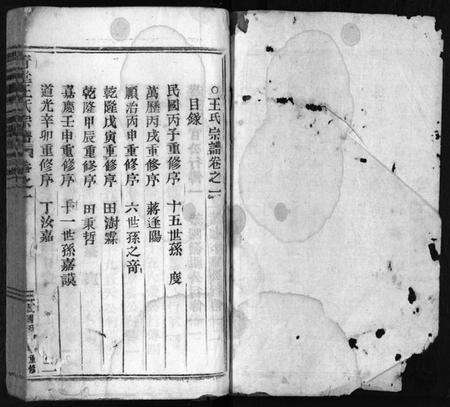 ○王氏宗譜卷之一
目錄
民國丙子重修序 十五世孫 度
萬歷丙戌重修序 蔣逢陽
順治丙申重修序 六世孫之音
乾隆戊寅重修序 田澍霖
乾隆甲辰重修序 田秉哲
嘉慶壬申重修序 十一世孫嘉謨
道光辛卯重修序 丁汝嘉
王氏宗譜 卷之一
重修